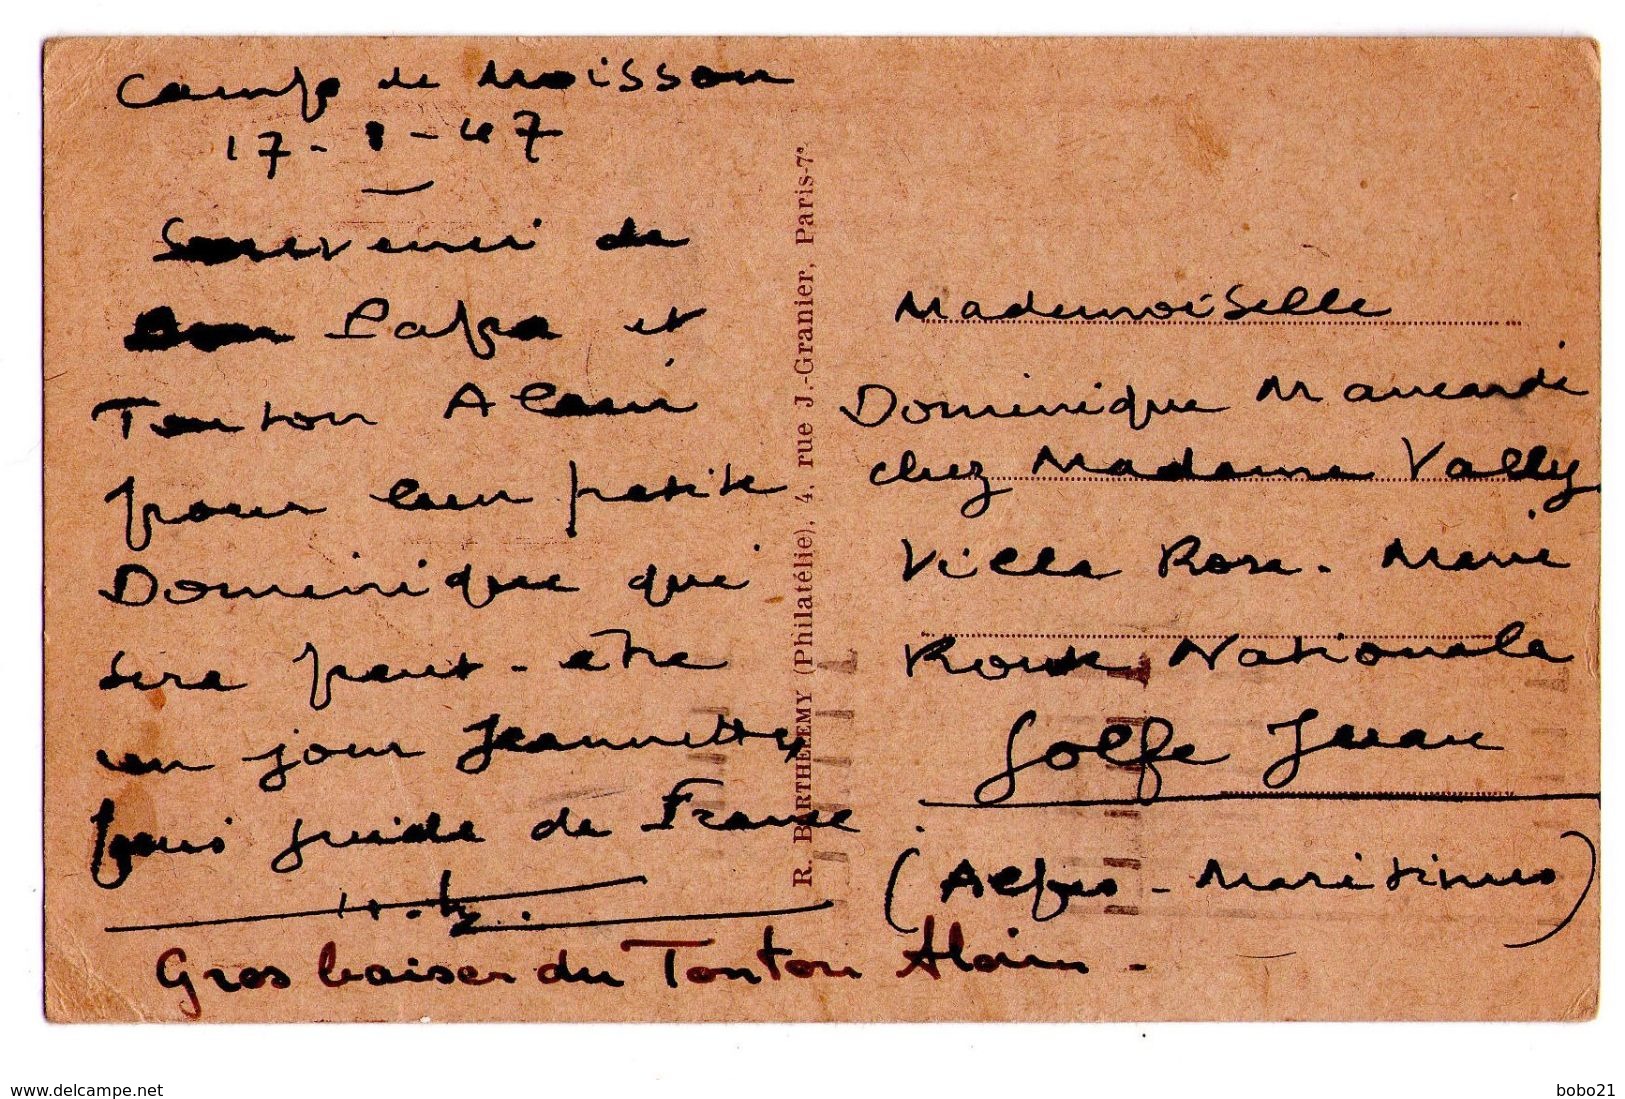 Camp de Moisson
17-8-47
Souvenir de
Papa et
Tonton Alain
pour leur petite
Dominique qui
sera peut-être
un jour Jeannette
puis guide de France
Gros baiser du Tonton Alain.
R. BARTHÉLEMY (Philatélie), 4, rue J.-Granier, Paris-7e
Mademoiselle
Dominique
chez Madame Vally
Villa Rose-Marie
Route Nationale
Golfe Juan
(Alpes-Maritimes)
www.delcampe.net
bobo21